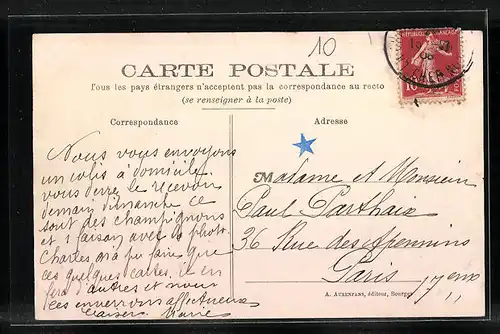 10
CARTE POSTALE
Tous les pays étrangers n'acceptent pas la correspondance au recto
(se renseigner à la poste)
Correspondance
Adresse
Nous vous envoyons
un colis à domicile
vous devez le recevoir
demain dimanche ce
sont des champignons
et 1 faisan avec la phot.
Charles n'a pu faire que
ces quelques cartes il en
fera d'autres et nous
les enverrons affectueux
baisers Marie
Madame et Monsieur
Paul Parthaix
36 Rue des Apennins
Paris 17 eme
A. AUXENFANS, éditeur, Bourges
REPUBLIQUE FRANÇAISE
10